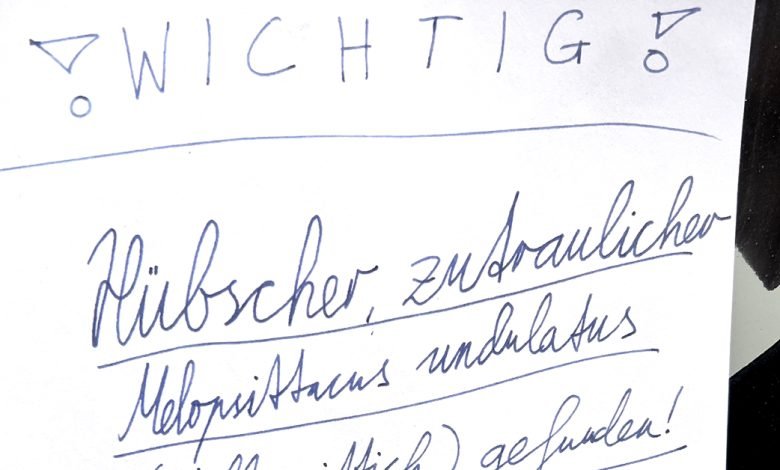 ! WICHTIG !
Hübscher, zutraulicher
Melopsittacus undulatus
gefunden!